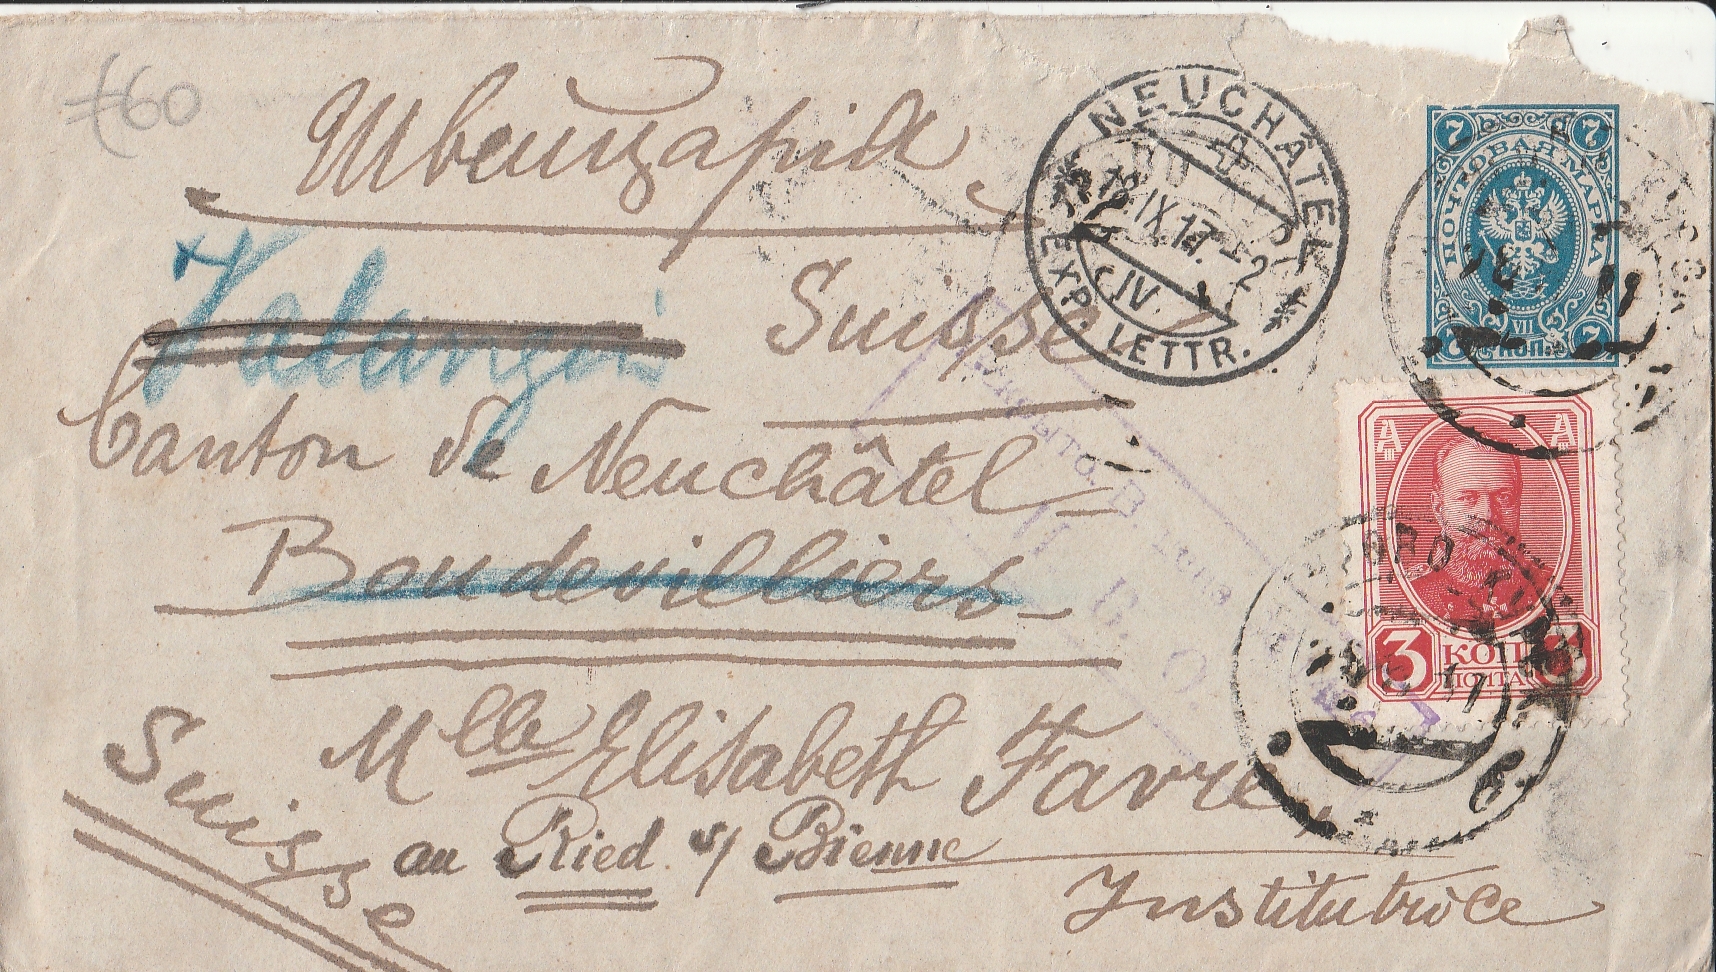 £60
Швейцарія
Suisse
Valangin
Canton de Neuchâtel
Boudevilliers
Mlle Elisabeth Favre,
au Ried s/ Bienne
Institutrice
Suisse
NEUCHÂTEL
13.IX.17.-2
IV.
EXP. LETTR.
7 7
ПОЧТОВАЯ МАРКА
VII
7 КОП. 7
А А
3 КОП 3
ПОЧТА
17
Вскрыто. В. ценз